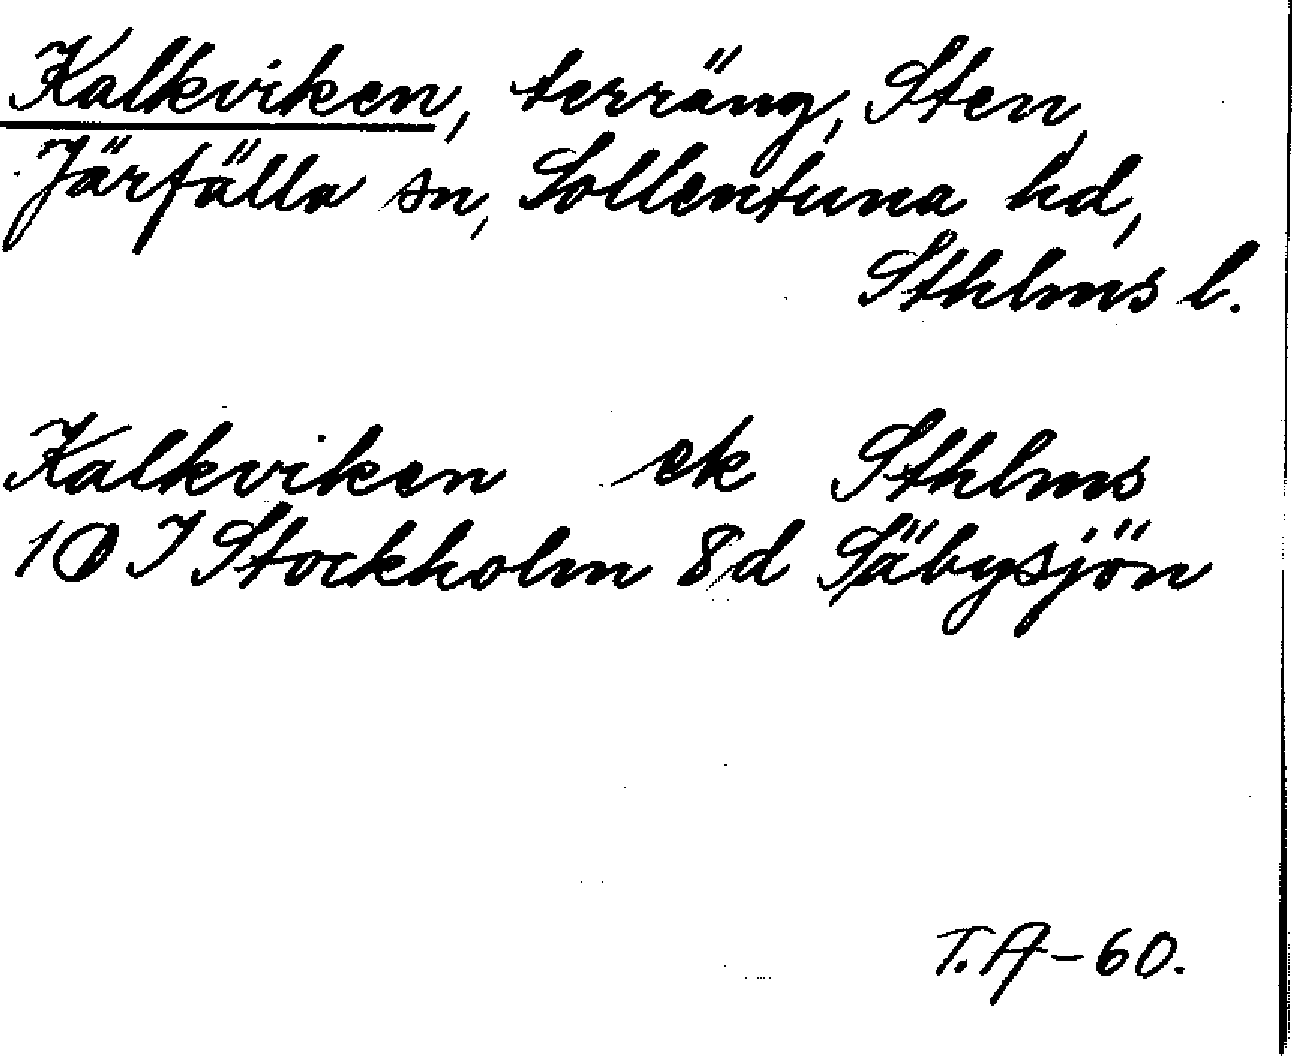 Kalkviken, terräng, Sten,
Järfälla sn, Sollentuna hd,
Sthlms l.
Kalkviken ek Sthlms
10 I Stockholm 8d Säbysjön
T.A-60.